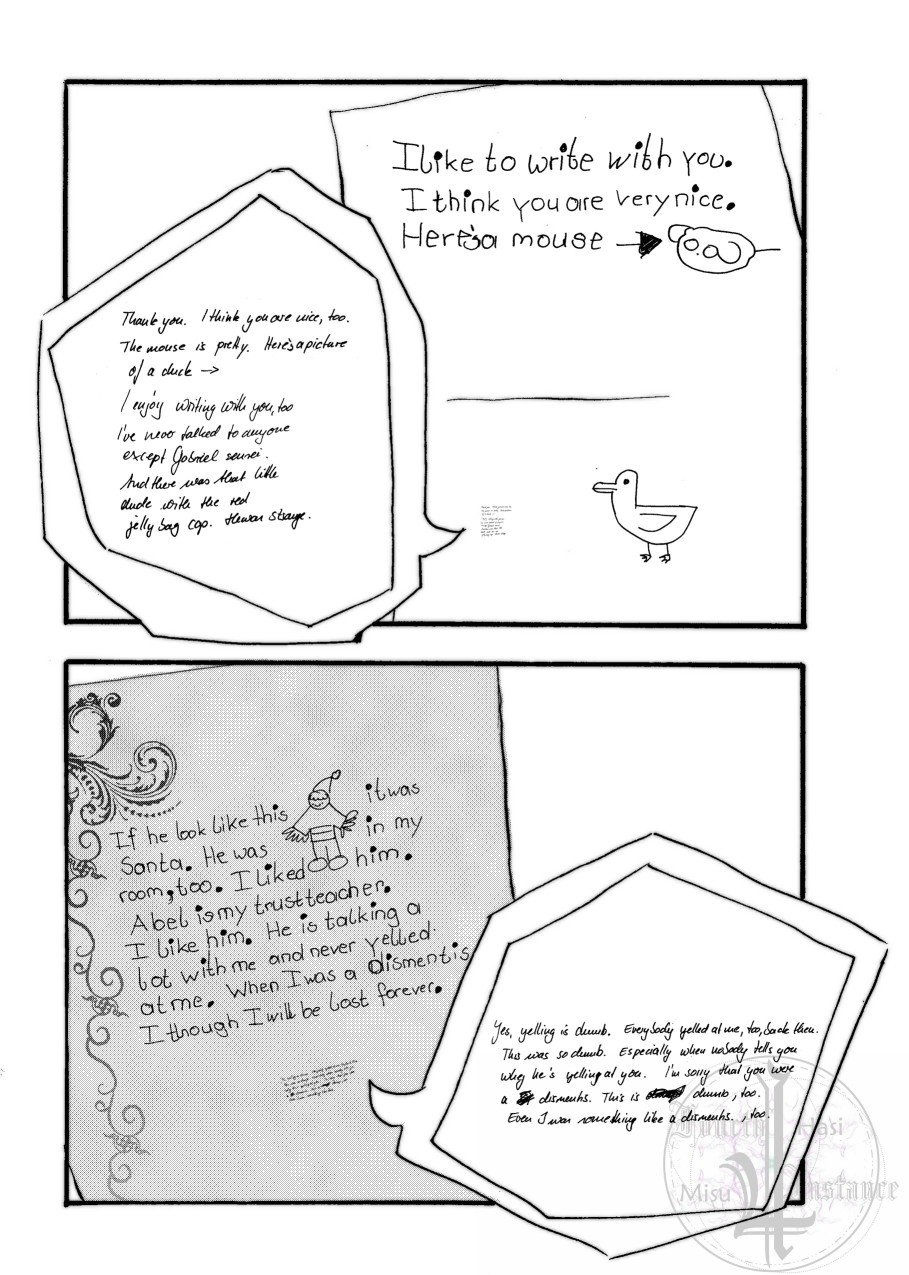 I like to write with you.
I think you are very nice.
Here's a mouse →
Thank you. I think you are nice, too.
The mouse is pretty. Here's a picture
of a duck →
I enjoy writing with you, too
I've never talked to anyone
except Gabriel sensei.
And there was that little
dude with the red
jelly bag cap. He was strange.
If he look like this it was
Santa. He was in my
room, too. I liked him.
Abel is my trustteacher.
I like him. He is talking a
lot with me and never yelled
at me. When I was a dismentis
I though I will be lost forever.
Yes, yelling is dumb. Everybody yelled at me, too, back then.
This was so dumb. Especially when nobody tells you
why he's yelling at you. I'm sorry that you were
a dismentis. This is dumb, too.
Even I was something like a dismentis., too.
Fourth Hasi
Misu Instance